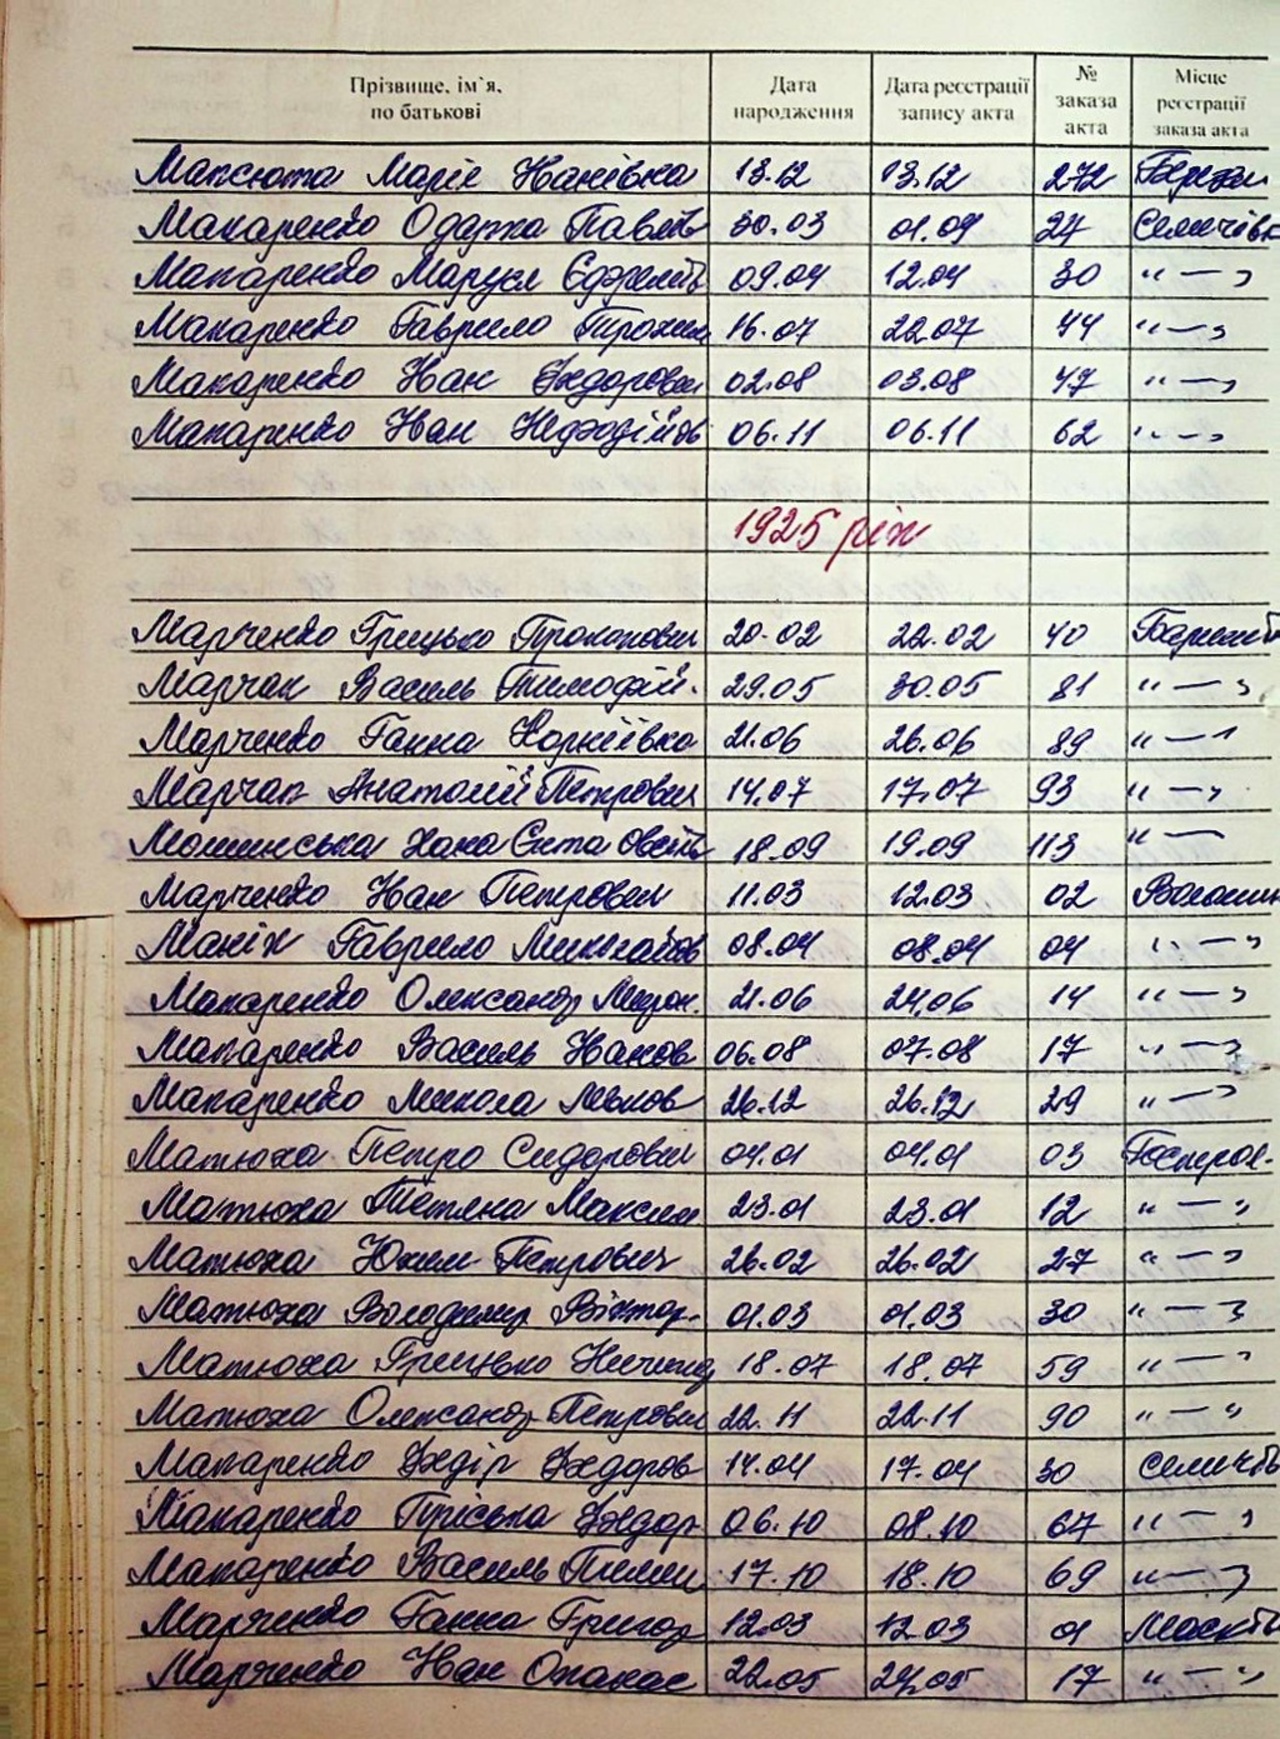 Прізвище, ім`я, по батькові Дата народження Дата реєстрації запису акта № заказа акта Місце реєстрації заказа акта
Максюта Марія Іванівна 13.12 13.12 272
Макаренко Одарка Павлів 30.03 01.04 24 Семенівк
Макаренко Маруся 09.04 12.04 30 "—"
Макаренко Гаврило Трохим 16.07 22.07 44 "—"
Макаренко Іван Федорович 02.08 03.08 47 "—"
Макаренко Іван 06.11 06.11 62 "—"
1925 рік
Марченко Грицько Прокопович 20.02 22.02 40
Марчак Василь Тимофій. 29.05 30.05 81 "—"
Марченко Ганна Корніївна 21.06 26.06 89 "—"
Марчак Анатолій Петрович 14.07 17.07 93 "—"
18.09 19.09 113 "—
Марченко Іван Петрович 11.03 12.03 02
Гаврило Миколайов 08.04 08.04 04 "—"
Макаренко Олександр Мирон. 21.06 24.06 14 "—"
Макаренко Василь Іванов 06.08 07.08 17 "—"
Макаренко Микола Левков 26.12 26.12 29 "—"
Матюха Петро Сидорович 04.01 04.01 03
Матюха Тетяна Максим 23.01 23.01 12 "—"
Матюха Юхим Петрович 26.02 26.02 27 "—"
Матюха Володимир Віктор. 01.03 01.03 30 "—"
Матюха Грицько 18.07 18.07 59 "—"
Матюха Олександр Петрович 22.11 22.11 90 "—"
Макаренко Федір Федоров 14.04 17.04 30
Макаренко Пріська Федор 06.10 08.10 67 "—"
Макаренко Василь Пилип 17.10 18.10 69 "—"
Марченко Ганна Григор 12.03 12.03 01
Марченко Іван Опанас 22.05 24.05 17 "—"